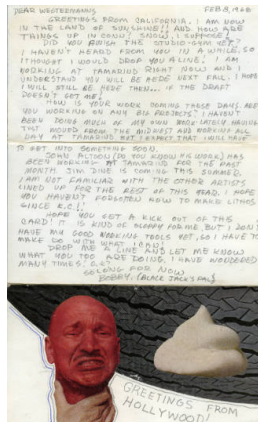 DEAR WESTERMANNS, FEB 8, 1968
GREETINGS FROM CALIFORNIA. I AM NOW
IN THE LAND OF SUNSHINE!! AND HOW ARE
THINGS UP IN COLD, SNOW, I SUPPOSE.
DID YOU FINISH THE STUDIO-GYM YET?
I HAVEN'T HEARD FROM YOU IN A WHILE, SO
I THOUGHT I WOULD DROP YOU A LINE! I AM
WORKING AT TAMARIND RIGHT NOW AND I
UNDERSTAND YOU WILL BE HERE NEXT FALL. I HOPE
I WILL STILL BE HERE THEN... IF THE DRAFT
DOESN'T GET ME!
HOW IS YOUR WORK COMING THOSE DAYS. ARE
YOU WORKING ON ANY BIG PROJECTS? I HAVEN'T
BEEN DOING MUCH OF MY OWN WORK LATELY, HAVING
JUST MOVED FROM THE MIDWEST AND WORKING ALL
DAY AT TAMARIND. BUT I EXPECT THAT I WILL HAVE
TO GET INTO SOMETHING SOON.
JOHN ALTOON (DO YOU KNOW HIS WORK) HAS
BEEN WORKING AT TAMARIND FOR THE PAST
MONTH. JIM DINE IS COMING THIS SUMMER.
I AM NOT FAMILIAR WITH THE OTHER ARTISTS
LINED UP FOR THE REST OF THIS YEAR. I HOPE
YOU HAVEN'T FORGOTTEN HOW TO MAKE LITHOS
SINCE K.C.!
HOPE YOU GET A KICK OUT OF THIS
CARD! IT IS KIND OF SLOPPY FOR ME, BUT I DON'T
HAVE MY GOOD WORKING TOOLS YET, SO I HAVE TO
MAKE DO WITH WHAT I CAN!
DROP ME A LINE AND LET ME KNOW
WHAT YOU TOO ARE DOING. I HAVE WONDERED
MANY TIMES! O.K?
SO LONG FOR NOW
BOBBY. (BLACK JACK'S PAL)
GREETINGS FROM
HOLLYWOOD!